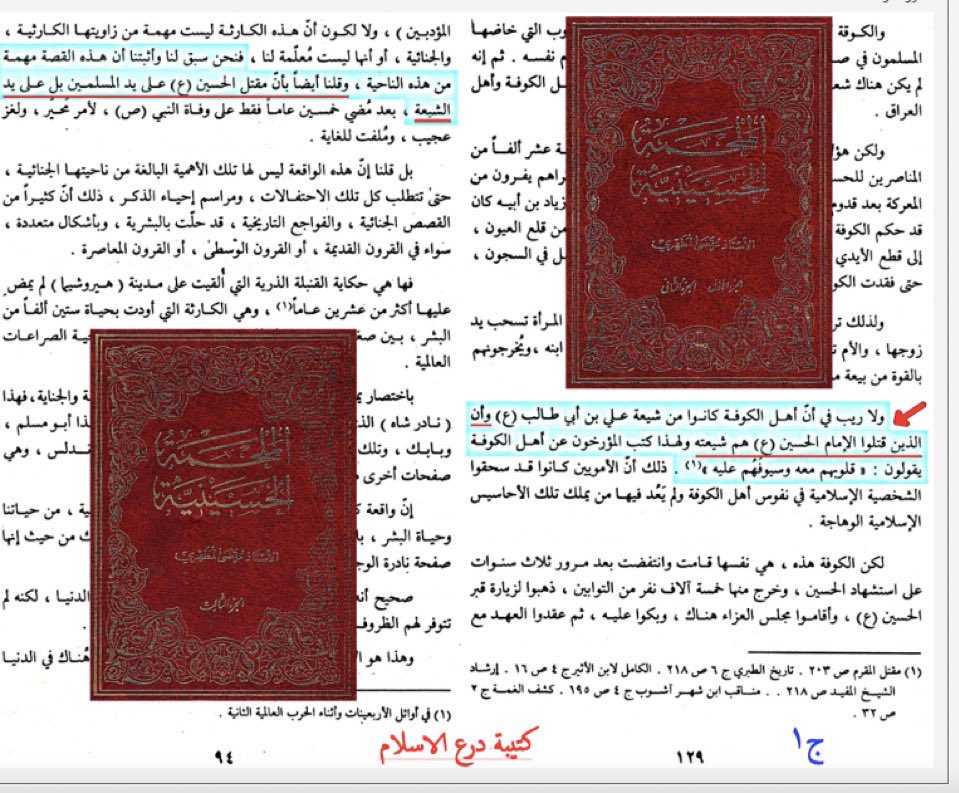 والكوفة التي خاضها
المسلمون في نفسه . ثم إنه
لم يكن هناك الكوفة وأهل
العراق .
ولكن عشر ألفاً من
المناصرين يفرون من
المعركة بعد قدوم زياد بن أبيه كان
قد حكم الكوفة من قلع العيون ،
إلى قطع الأيدي في السجون ،
حتى فقدت
ولذلك المرأة تسحب يد
زوجها ، والأم ابنه ، ويُخرجونهم
بالقوة من بيعة
الملحمة
الحسينية
الأستاذ مرتضى المطهري
الجزء الأول الجزء الثاني
ولا ريب في أنّ أهل الكوفة كانوا من شيعة علي بن أبي طالب (ع) وأن
الذين قتلوا الإمام الحسين (ع) هم شيعته ولهذا كتب المؤرخون عن أهل الكوفة
يقولون : « قلوبهم معه وسيوفهم عليه »(١) . ذلك أنّ الأمويين كانوا قد سحقوا
الشخصية الإسلامية في نفوس أهل الكوفة ولم يَعُد فيها من يملك تلك الأحاسيس
الإسلامية الوهاجة .
لكن الكوفة هذه ، هي نفسها قامت وانتفضت بعد مرور ثلاث سنوات
على استشهاد الحسين ، وخرج منها خمسة آلاف نفر من التوابين ، ذهبوا لزيارة قبر
الحسين (ع) ، وأقاموا مجلس العزاء هناك ، وبكوا عليه ، ثم عقدوا العهد مع
(١) مقتل المقرم ص ٢٠٣ . تاريخ الطبري ج ٦ ص ٢١٨ . الكامل لابن الأثير ج ٤ ص ١٦ . إرشاد
الشيخ المفيد ص ٢١٨ . . مناقب ابن شهر آشوب ج ٤ ص ١٩٥ . كشف الغمة ج ٢
ص ٣٢ .
١٢٩
ج١
المؤدبين ) ، ولا لكون أنّ هذه الكارثة ليست مهمة من زاويتها الكارثية ،
والجنائية ، أو أنها ليست مُعلّمة لنا ، فنحن سبق لنا وأثبتنا أن هذه القصة مهمة
من هذه الناحية ، وقلنا أيضاً بأنّ مقتل الحسين (ع) على يد المسلمين بل على يد
الشيعة ، بعد مُضي خمسين عاماً فقط على وفاة النبي (ص) ، لأمر محيّر ، ولغز
عجيب ، ومُلفت للغاية .
بل قلنا إنّ هذه الواقعة ليس لها تلك الأهمية البالغة من ناحيتها الجنائية ،
حتى تتطلب كل تلك الاحتفالات ، ومراسم إحياء الذكر ، ذلك أنّ كثيراً من
القصص الجنائية ، والفواجع التاريخية ، قد حلّت بالبشرية ، وبأشكال متعددة ،
سواء في القرون القديمة ، أو القرون الوسطى ، أو القرون المعاصرة .
فها هي حكاية القنبلة الذرية التي أُلقيت على مدينة ( هيروشيما ) لم يمض
عليها أكثر من عشرين عاماً(١) ، وهي الكارثة التي أودت بحياة ستين ألفاً من
البشر ، بين الصراعات
العالمية .
باختصار والجناية ، فهذا
( نادر شاه ) أبو مسلم ،
وبابك ، وتلك وهي
صفحات أخرى
إنّ واقعة ، من حياتنا
وحياة البشر ، من حيث إنها
صفحة نادرة
صحيح الدنيا ، لكنه لم
تتوفر لهم
وهذا هو هُناك في الدنيا
الملحمة
الحسينية
الأستاذ مرتضى المطهري
الجزء الثالث
(١) في أوائل الأربعينات وأثناء الحرب العالمية الثانية .
٩٤
كتيبة درع الاسلام